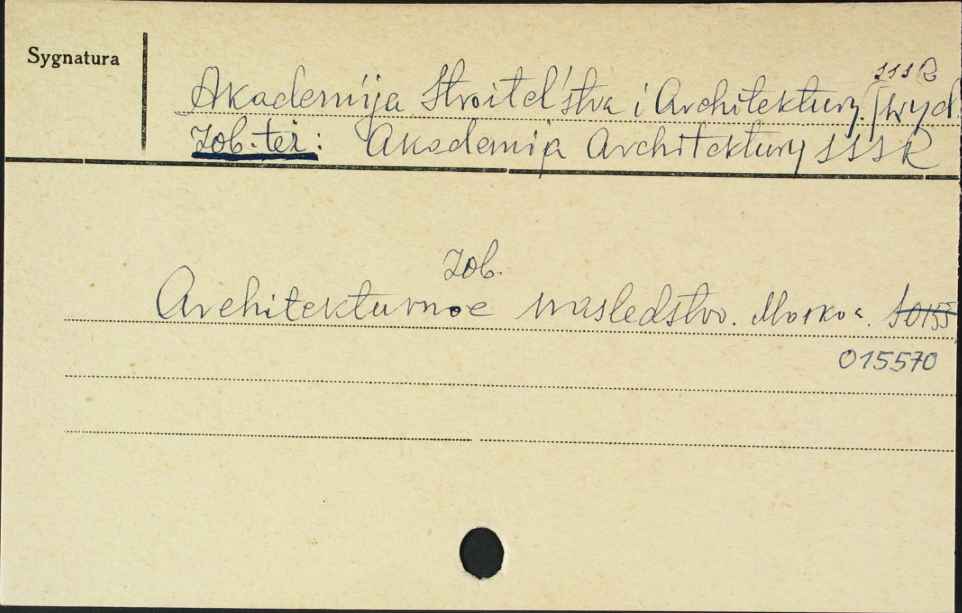 Sygnatura
SSSR
Akademija Stroitel'stva i Architektury. (wyd.
Zob. też: Akademija Architektury SSSR
Zob.
Architekturnoe nasledstvo. Moskva.
015570